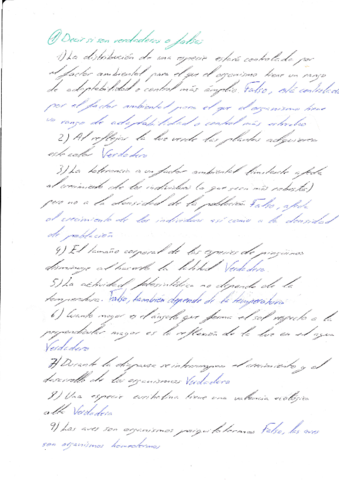 Decir si son verdaderos o falsos
1) La distribución de una especie estará controlada por
el factor ambiental para el que el organismo tiene un rango
de adaptabilidad o control más amplio Falso, está controlada
por el factor ambiental para el que el organismo tiene
un rango de adaptabilidad o control más estrecho
2) Al reflejar la luz verde las plantas adquieren
este color Verdadero
3) La tolerancia a un factor ambiental limitante afecta
al crecimiento de los individuos (lo que sería más robusto)
pero no a la densidad de la población Falso, afecta
al crecimiento de los individuos así como a la densidad
de población
4) El tamaño corporal de las especies de pingüinos
disminuye al la latitud Verdadero
5) La actividad fotosintética no depende de la
temperatura. Falso, también depende de la temperatura
6) Cuanto mayor es el ángulo que forma el sol respecto a la
perpendicular mayor es la reflexión de la luz en el agua
Verdadero
7) Durante la diapausa se interrumpen el crecimiento y el
desarrollo de los organismos Verdadero
8) Una especie eurihalina tiene una valencia ecológica
alta Verdadero
9) Las aves son organismos poiquilotermos Falso, las aves
son organismos homeotermos